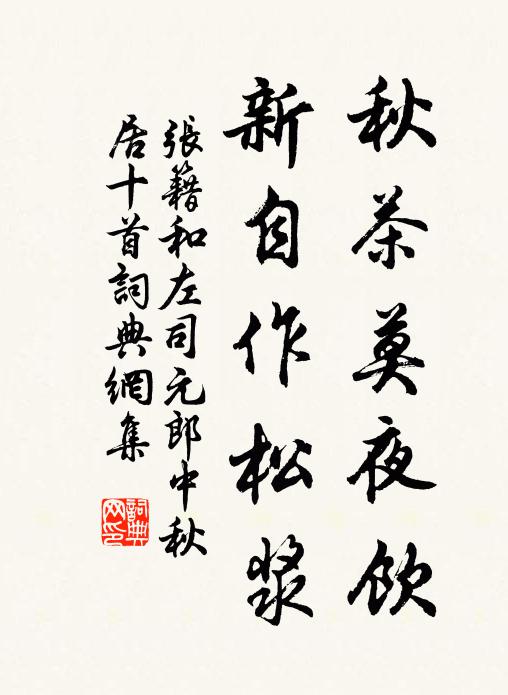 秋茶莫夜飲
新自作松漿
張籍和左司元郎中秋
居十首詞典網集
詞典網印